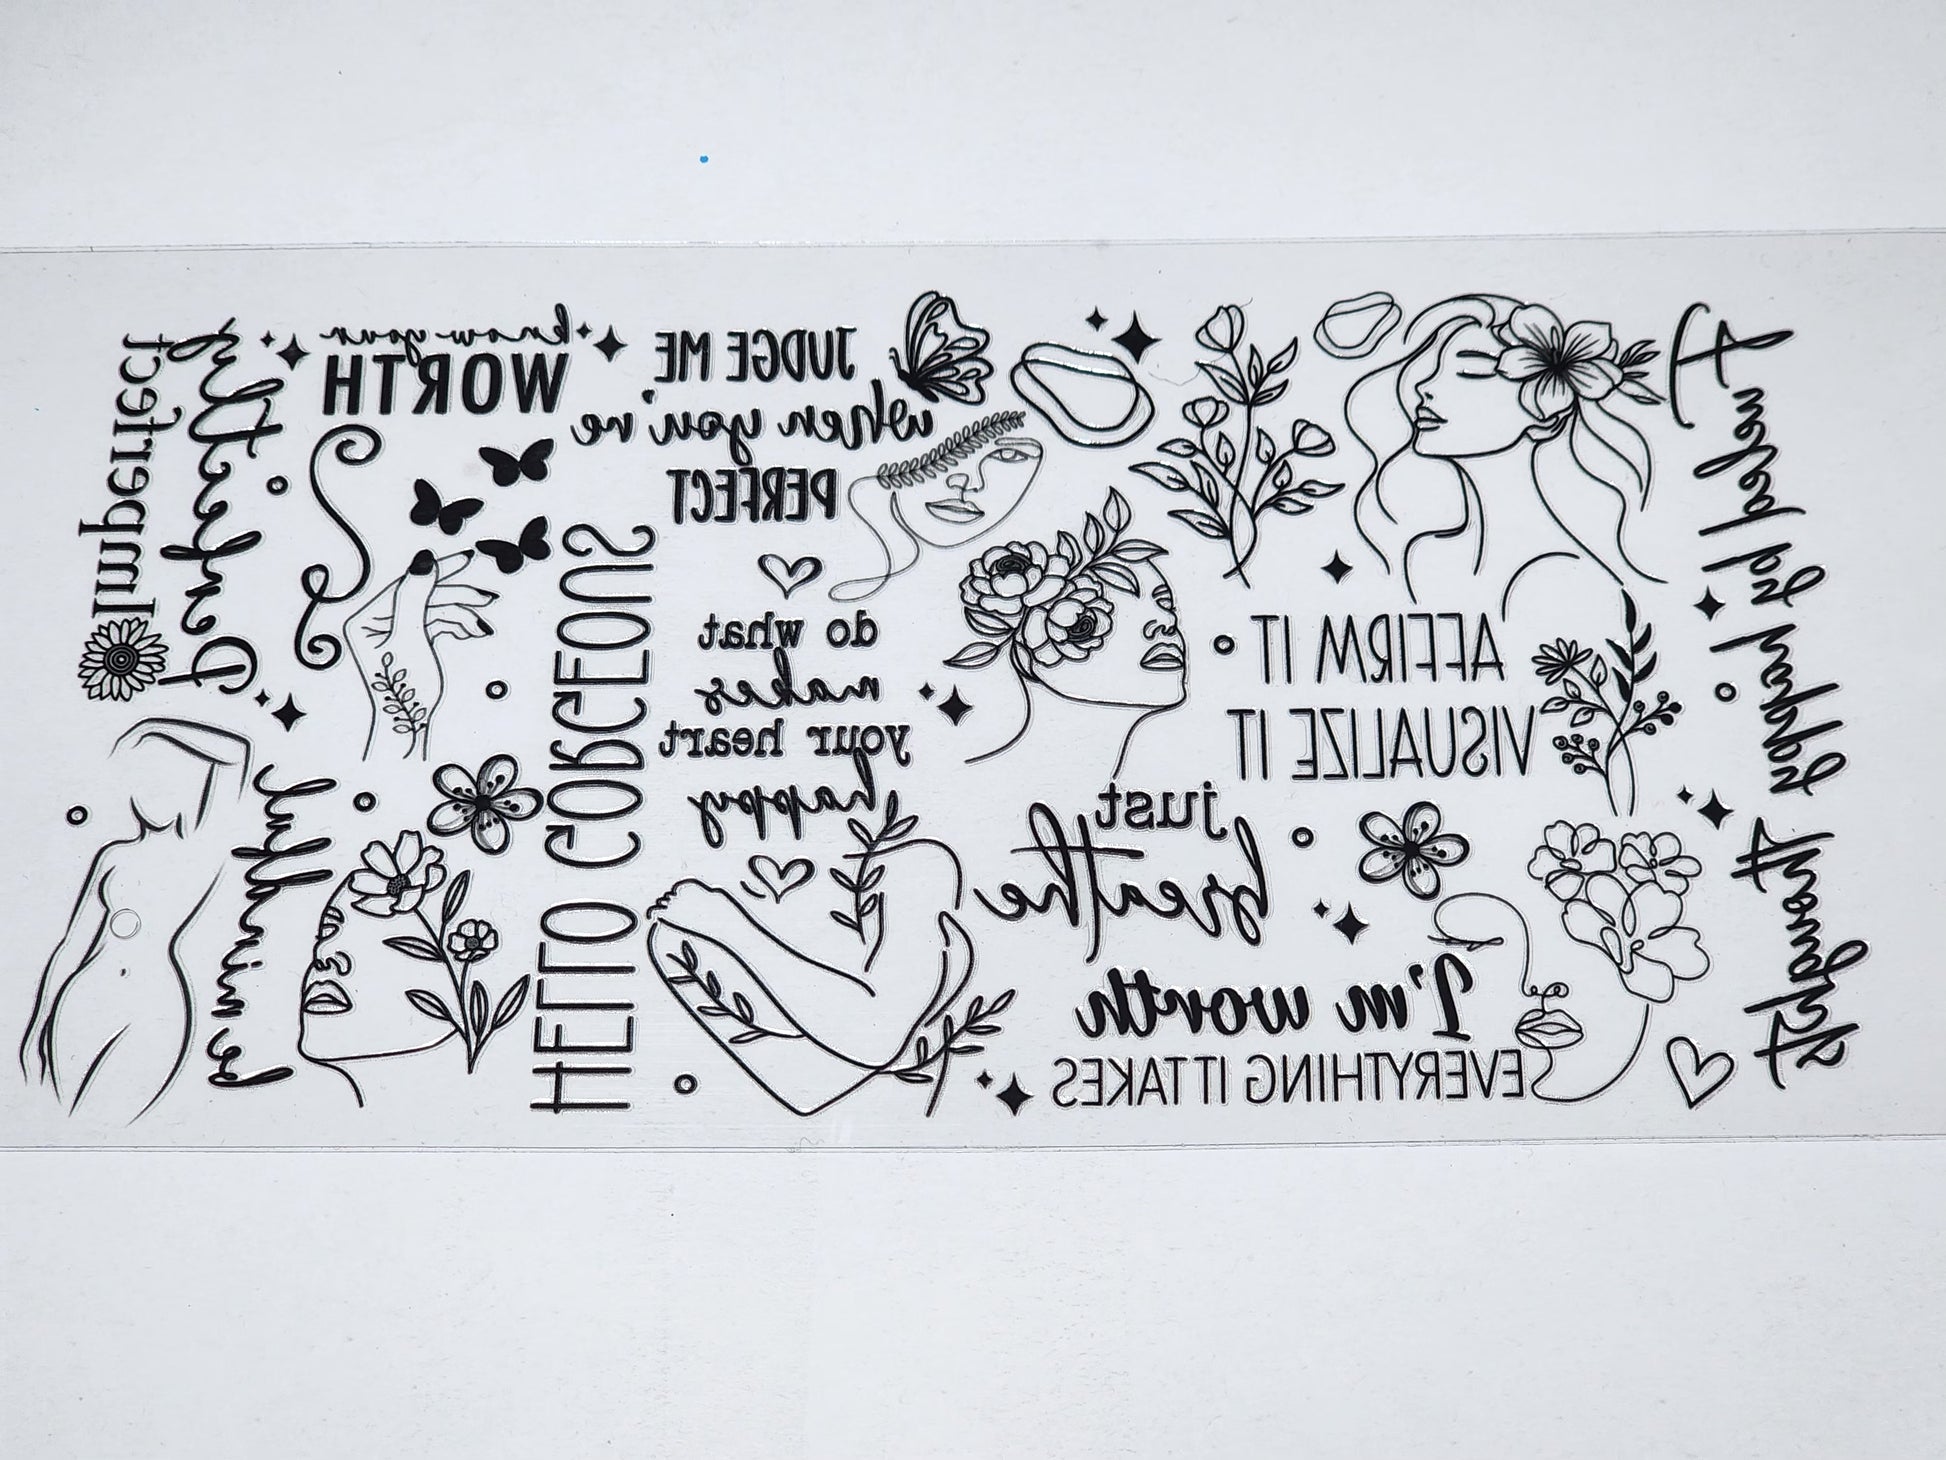 know your
WORTH
JUDGE ME
when you're
PERFECT
Perfectly
Imperfect
HELLO GORGEOUS
do what
makes
your heart
happy
AFFIRM IT
VISUALIZE IT
just
breathe
I'm worth
EVERYTHING IT TAKES